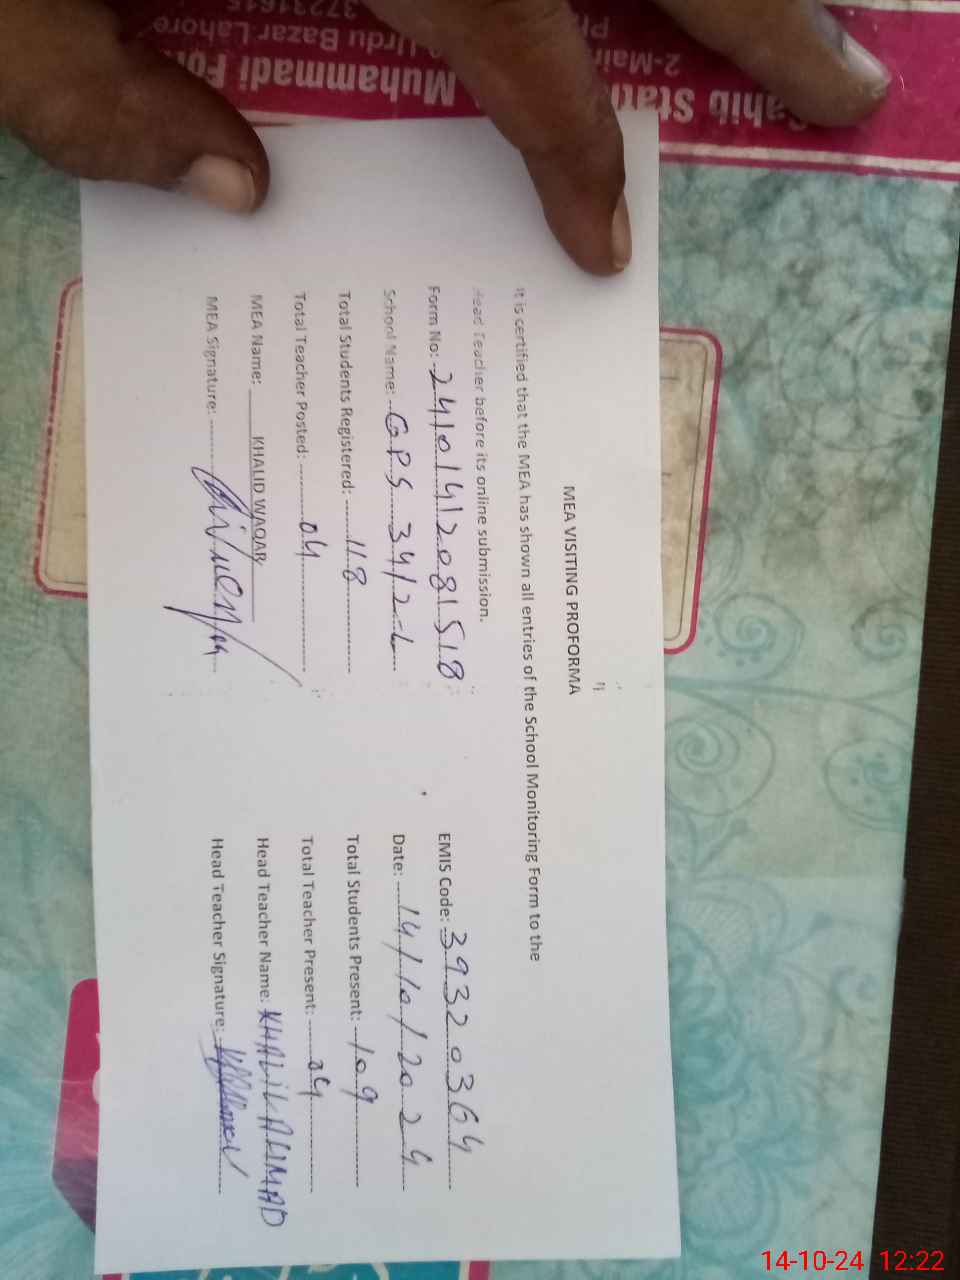 MEA VISITING PROFORMA
It is certified that the MEA has shown all entries of the School Monitoring Form to the
Head Teacher before its online submission.
Form No: 24101412081518 EMIS Code: 39320364
School Name: GPS 34/2-L Date: 14/10/2024
Total Students Registered: 118 Total Students Present: 109
Total Teacher Posted: 04 Total Teacher Present: 04
MEA Name: KHALID WAQAR Head Teacher Name: KHALIL AHMAD
MEA Signature: Head Teacher Signature:
Sahib Muhammadi
2-Main Urdu Bazar Lahore
14-10-24 12:22